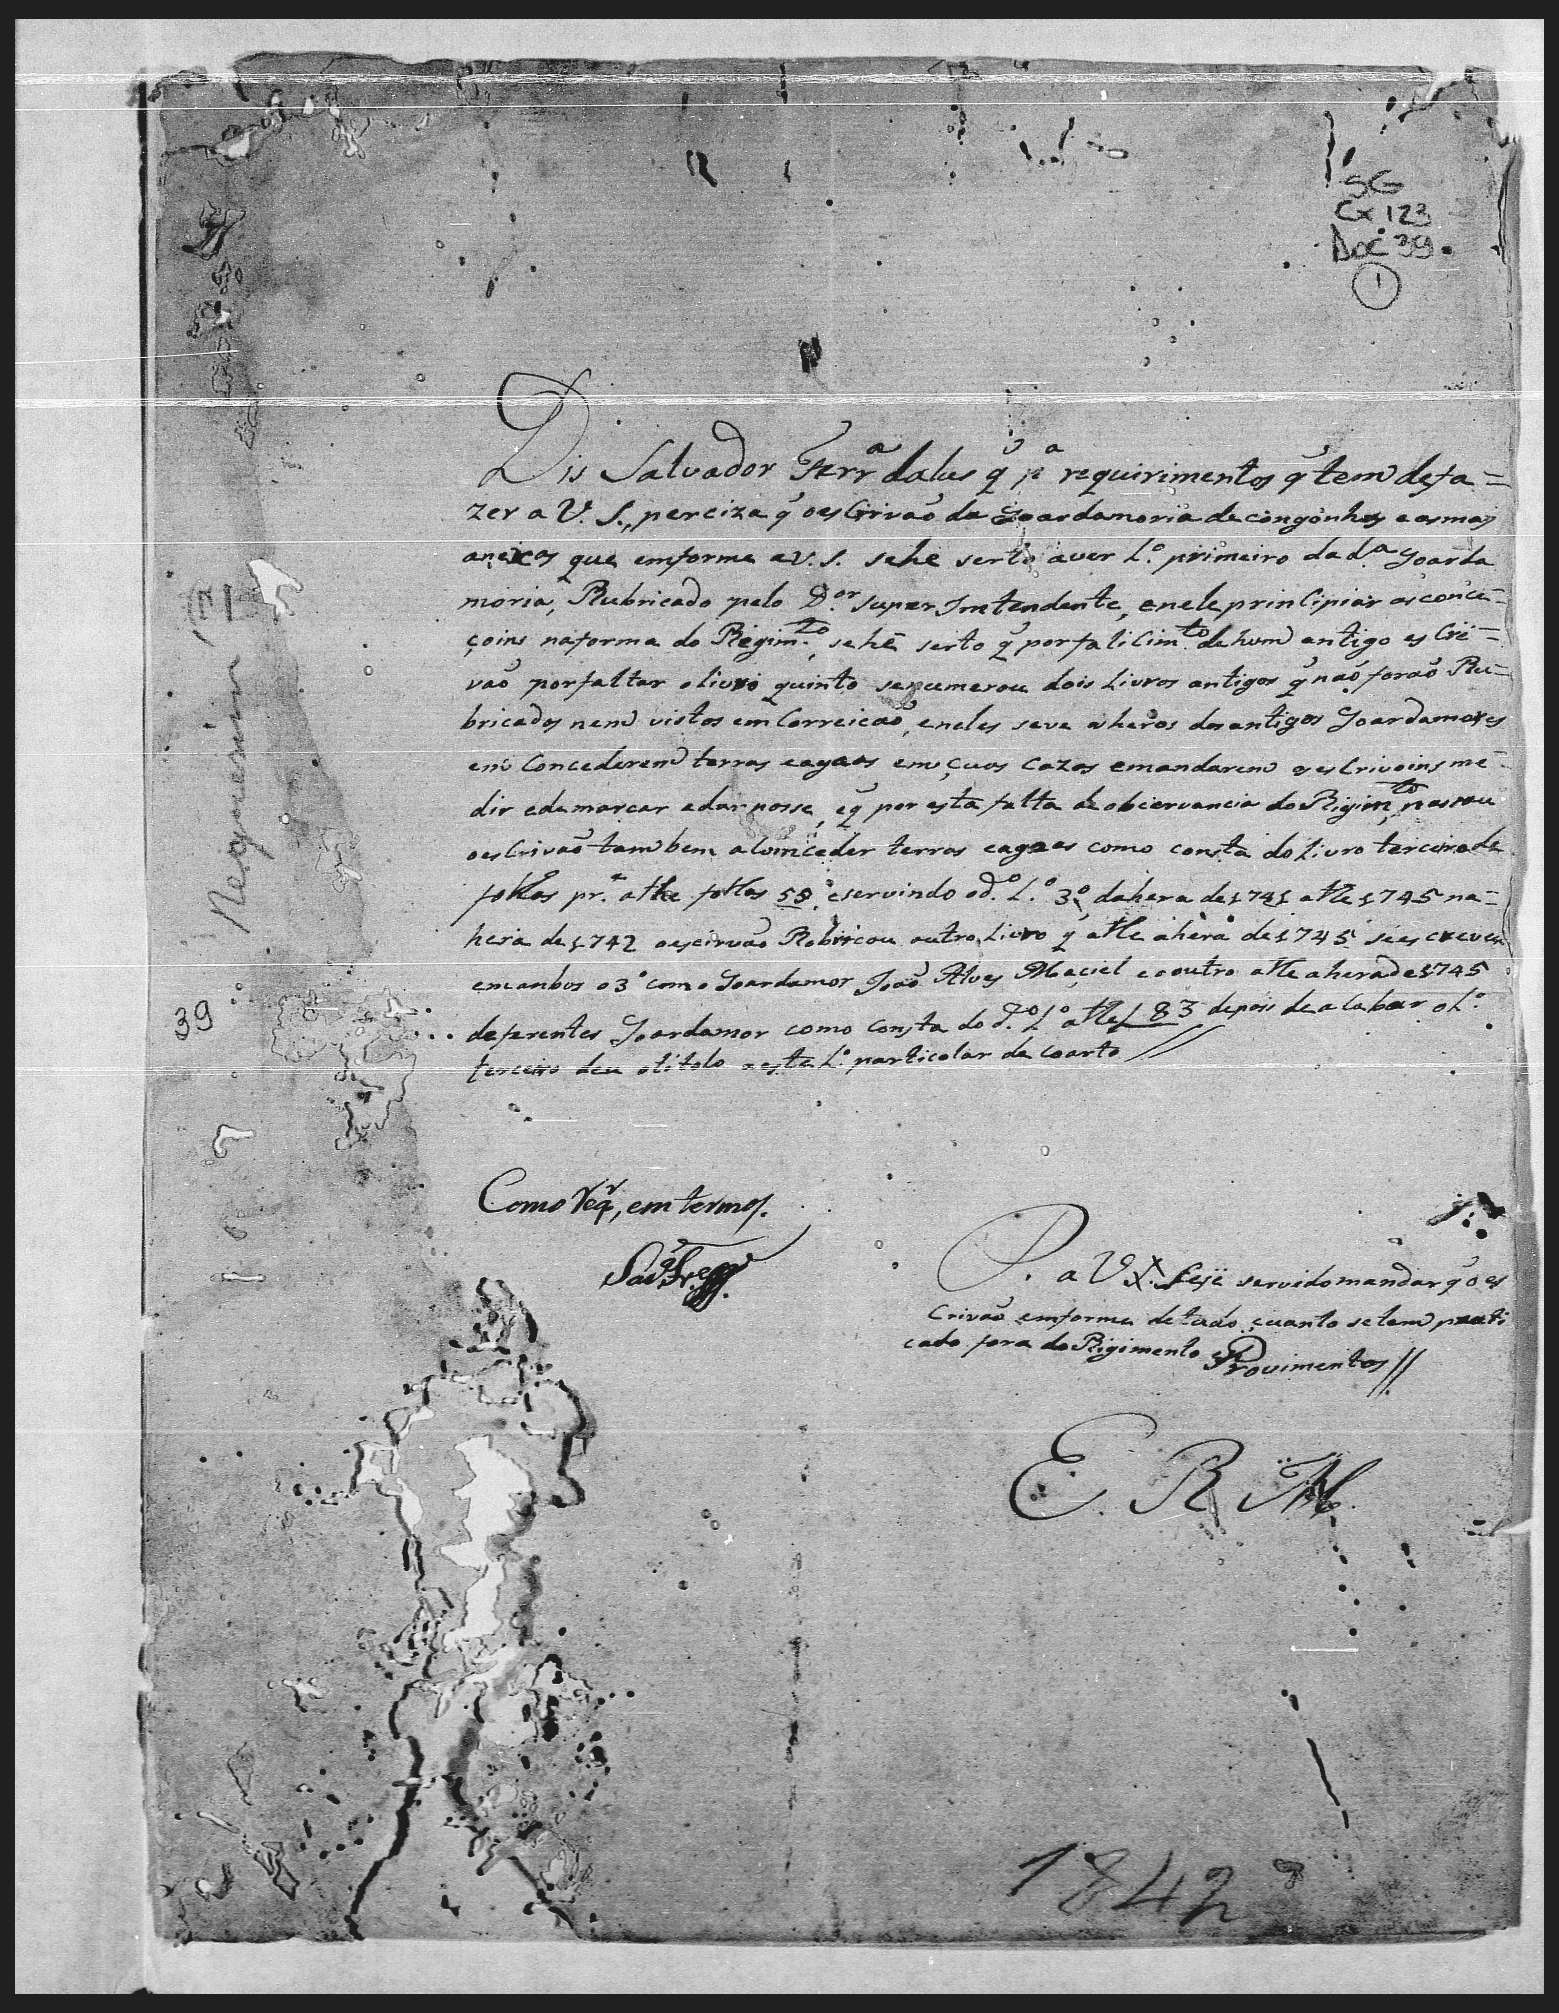 SG
Cx 123
Doc 39
1
Dis Salvador Ferrª dalus q̃ pª requirimentos q̃ tem de fa=
zer a V. S., perciza q̃ o esCrivaõ da Goardamoria de congonhas e as mais
anexas que emforme a V. S. se he serto aver L.º primeiro da d.ª Goarda
moria, Rubricado pelo D.or super Imtendente, e nele prinCipiar as conce=
çoins na forma do Regim.to, se hé serto q̃ por faliCim.to de hum antigo es Cri=
vaõ por faltar o livro quinto se numerou dois Livros antigos q̃ naõ foraõ Ru=
bricados nem vistos em Correicaõ, e neles se ve os heros dos antigos Goardamores
em Concederem terras e agoas em çuos cazos e mandarem os esCrivoins me=
dir e demarcar e dar posse, e q̃ por esta falta de obcervancia do Regim.to, passou
o esCrivaõ tambem a Conceder terras e agoas como consta do Livro terceiro de
folhas pr.ª athe folhas 58, e servindo o d.º L.º 3º da hera de 1741 athe 1745 na=
hera de 1742 o escrivaõ Robricou outro Livro q̃ athe a hera de 1745 se escreveu
em anbos o 3º com o Goardamor Joaõ Alves Maciel e o outro athe a hera de 1745
deferentes Goardamor como Consta do d.º L.º athe f 83 depois de aCabar o L.º
terceiro deu o titolo a este L.º particolar de coarto //
Como req.r, em termos.
P. a V. S. seje servido mandar q̃ o es
Crivaõ emforme de tudo cuanto se tem prati
cado fora do Rigimento e Provimentos //
E. R. M.
Requerim
39
1842